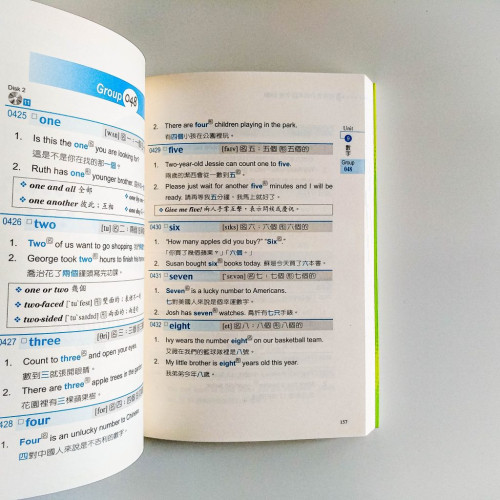 Disk 2
11
Group 048
0425 □ one
1. Is this the one you are looking for?
這是不是你在找的那一個。
2. Ruth has one younger brother.
❖ one and all 全部
❖ one another 彼此；互相
0426 □ two
1. Two of us want to go shopping.
2. George took two hours to finish his
喬治花了兩個鐘頭寫完功課。
❖ one or two 幾個
❖ two-faced
❖ two-sided
0427 □ three
1. Count to three and open your eyes.
數到三就張開眼睛。
2. There are three apple trees in the garden.
花園裡有三棵蘋果樹。
428 □ four
1. Four is an unlucky number to Chinese.
四對中國人來說是不吉利的數字。
2. There are four children playing in the park.
有四個小孩在公園裡玩。
0429 □ five [faɪv] 五；五個 五個的
1. Two-year-old Jessie can count one to five.
兩歲的潔西會從一數到五。
2. Please just wait for another five minutes and I will be
ready. 請再等我五分鐘，我馬上就好了。
❖ Give me five! 兩人手掌互擊，表示問候或慶祝。
0430 □ six [sɪks] 六；六個 六個的
1. "How many apples did you buy?" "Six."
「你買了幾個蘋果？」「六個。」
2. Susan bought six books today. 蘇珊今天買了六本書。
0431 □ seven [ˈsɛvən] 七；七個 七個的
1. Seven is a lucky number to Americans.
七對美國人來說是個幸運數字。
2. Josh has seven watches. 喬許有七只手錶。
0432 □ eight [et] 八；八個 八個的
1. Ivy wears the number eight on our basketball team.
艾薇在我們的籃球隊裡是八號。
2. My little brother is eight years old this year.
我弟弟今年八歲。
Unit
9
數字
Group
048
157